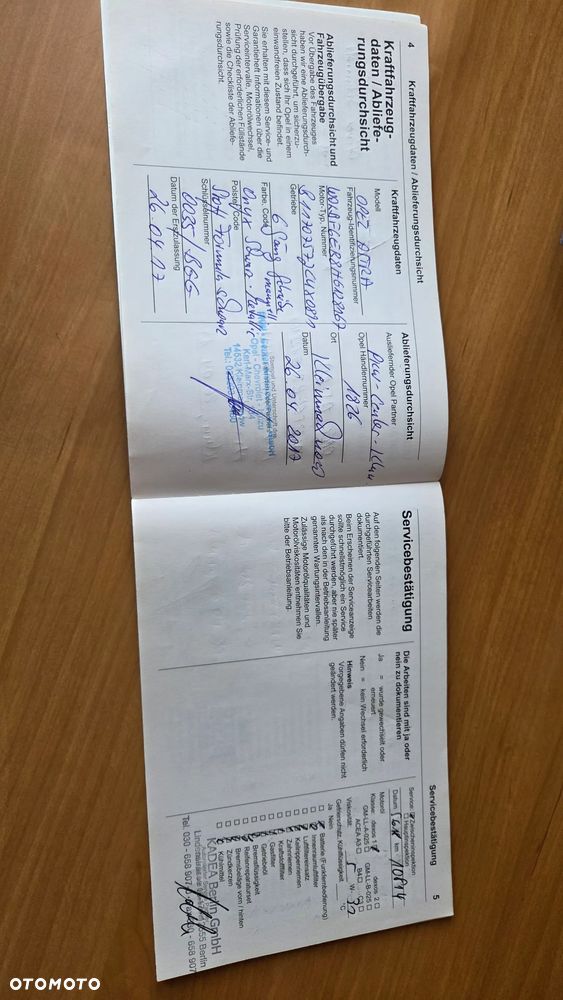 4
Kraftfahrzeugdaten / Ablieferungsdurchsicht
Kraftfahrzeug-
daten / Abliefe-
rungsdurchsicht
Ablieferungsdurchsicht und
Fahrzeugübergabe
Vor Übergabe des Fahrzeuges
haben wir eine Ablieferungsdurch-
sicht durchgeführt, um sicherzu-
stellen, dass sich Ihr Opel in einem
einwandfreien Zustand befindet.
Sie erhalten mit diesem Service- und
Garantieheft Informationen über die
Serviceintervalle, Motorölwechsel,
Prüfung der erforderlichen Füllstände
sowie die Checkliste der Abliefe-
rungsdurchsicht.
Kraftfahrzeugdaten
Modell
OPEL ASTRA
Fahrzeug-Identifizierungsnummer
Motor-Typ, Nummer
Getriebe
6 Gang
Farbe, Code
Onyx
Polster, Code
Stoff Formula
Schlüsselnummer
0035/
Datum der Erstzulassung
26.04.17
Ablieferungsdurchsicht
Ausliefernder Opel Partner
Opel Händlernummer
1826
Ort
Kleinmachnow
Datum
26.04.2017
Stempel und Unterschrift des
Opel - Chevrolet - Isuzu
Karl-Marx-Str.
14532 Kleinmachnow
Tel.
Servicebestätigung
5
Servicebestätigung
Auf den folgenden Seiten werden die
durchgeführten Servicearbeiten
dokumentiert.
Beim Erscheinen der Serviceanzeige
sollte schnellstmöglich ein Service
durchgeführt werden, aber nie später
als nach den in der Betriebsanleitung
genannten Wartungsintervallen.
Zulässige Motorölqualitäten und
Motorölviskositäten entnehmen Sie
bitte der Betriebsanleitung.
Die Arbeiten sind mit ja oder
nein zu dokumentieren
Ja = wurde gewechselt oder
erneuert
Nein = kein Wechsel erforderlich
Hinweis
Vorgegebene Angaben dürfen nicht
geändert werden.
Service: Zwischeninspektion
Hauptinspektion
Datum km 10814
Motoröl
Klasse: dexos 1 dexos 2
GM-LL-A-025 GM-LL-B-025
ACEA A3 B4 C3
Viskosität: 5 W- 30
Gefrierschutz, Kühlflüssigkeit °C
Ja Nein
Batterie (Funkfernbedienung)
Innenraumluftfilter
Luftfiltereinsatz
Keilrippenriemen
Zahnriemen
Kraftstofffilter
Gasfilter
Getriebeöl
Bremsflüssigkeit
Reifenreparaturset
Bremsbeläge vorn / hinten
Zündkerzen
Kühlmittel
KADEA Berlin GmbH
Berlin
Tel. 030 - 658 907
OTOMOTO